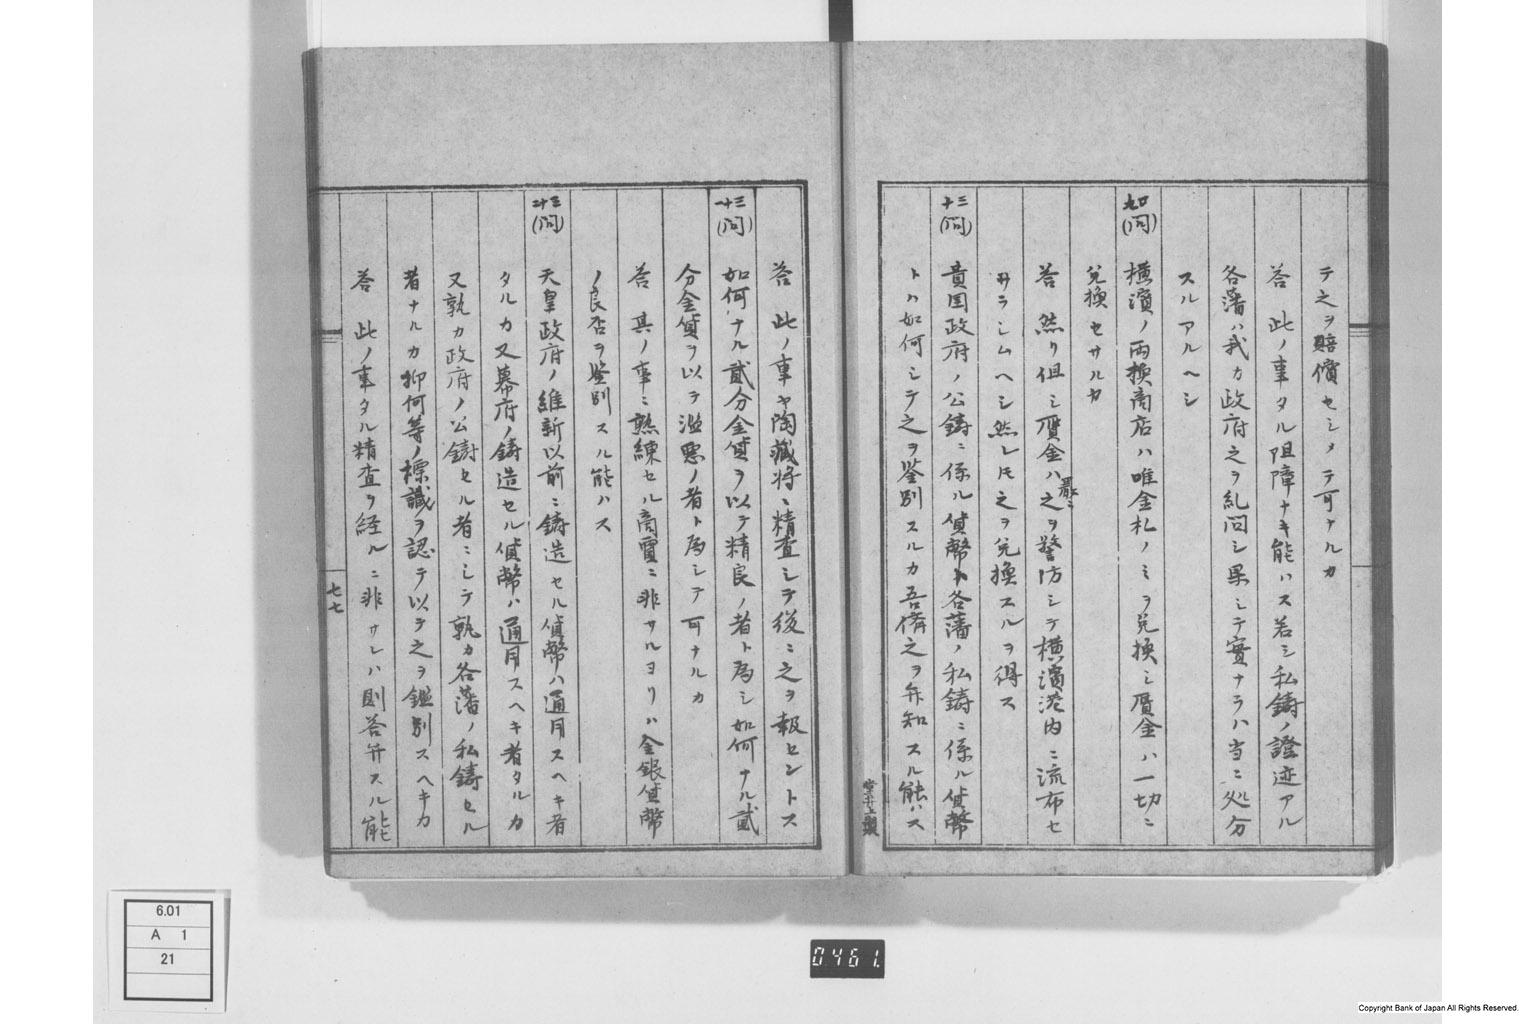 テ之ヲ賠償セシメテ可ナルカ
答 此ノ事タル阻障ナキ能ハス若シ私鋳ノ證迹アル
各藩ハ我カ政府之ヲ糺問シ果シテ實ナラハ当ニ処分
スルアルヘシ
(問)
横濱ノ両換商店ハ唯金札ノミヲ兌換シ贋金ハ一切ニ
兌換セサルカ
答 然リ但シ贋金ハ嚴ニ之ヲ警防シテ横濱港内ニ流布セ
サラシムヘシ然レトモ之ヲ兌換スルヲ得ス
三十(問)
貴国政府ノ公鋳ニ係ル貨幣ト各藩ノ私鋳ニ係ル貨幣
トハ如何シテ之ヲ鉴別スルカ吾儕之ヲ弁知スル能ハス
答 此ノ事ヤ陶藏将ニ精査シテ後ニ之ヲ報セントス
三十一(問)
如何ナル貳分金貨ヲ以テ精良ノ者ト為シ如何ナル貳
分金貨ヲ以テ滥悪ノ者ト為シテ可ナルカ
答 其ノ事ニ熟練セル商賈ニ非サルヨリハ金銀貨幣
ノ良否ヲ鉴別スル能ハス
三十二(問)
天皇政府ノ維新以前ニ鋳造セル貨幣ハ通用スヘキ者
タルカ又幕府ノ鋳造セル貨幣ハ通用スヘキ者タルカ
又孰カ政府ノ公鋳セル者ニシテ孰カ各藩ノ私鋳セル
者ナルカ抑何等ノ標識ヲ認テ以テ之ヲ鑑別スヘキカ
答 此ノ事タル精査ヲ経ルニ非サレハ則答弁スル能
七七
6.01
A 1
21
0461.
Copyright Bank of Japan All Rights Reserved.